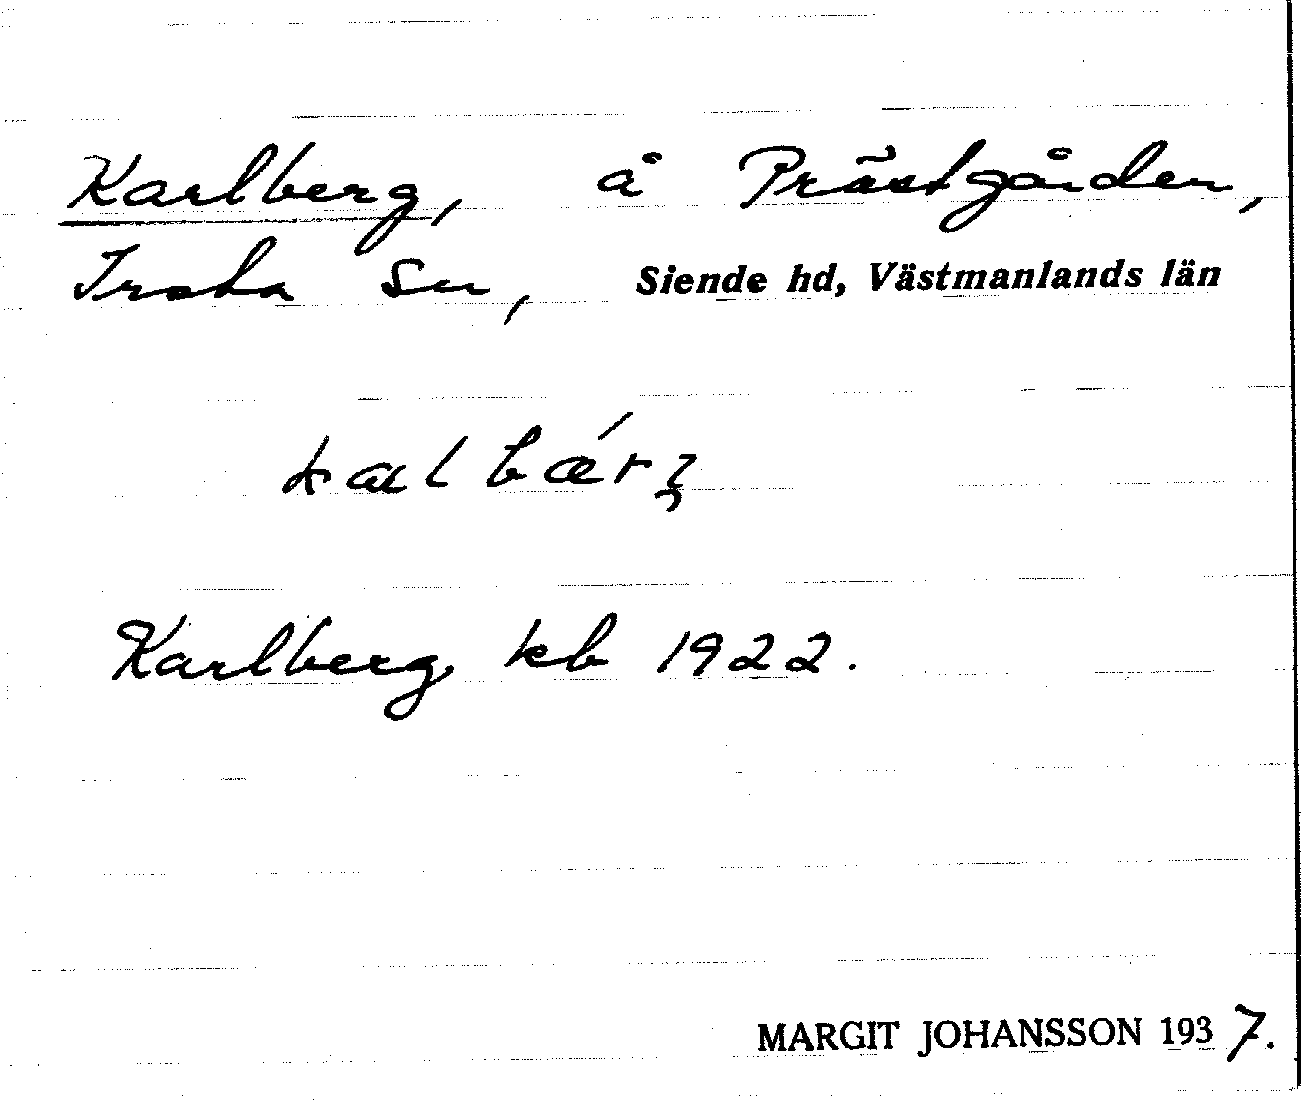 Karlberg, å Prästgården,
Irsta Sn, Siende hd, Västmanlands län
kalbǽrʒ
Karlberg kb 1922.
MARGIT JOHANSSON 1937.